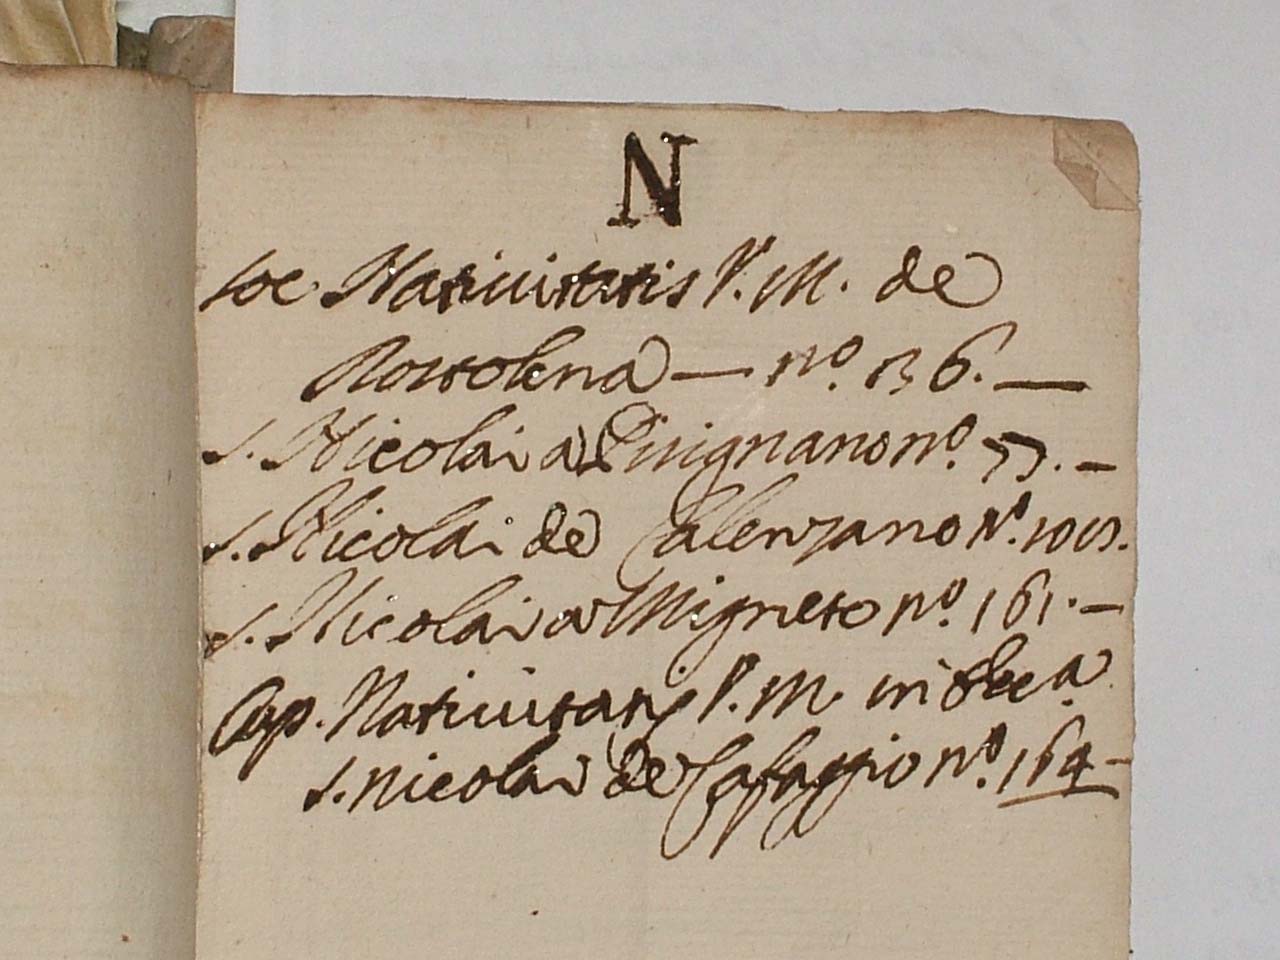 N
Soc. Nativitatis V. M. de
Rostolena — nº. 136. —
S. Nicolai a Pinignano nº. 77. —
S. Nicolai de Calenzano Nº.
S. Nicolai a Migneto nº. 161. —
Cap. Nativitatis V. M. in Ecc.a
S. Nicolai de Cafaggio nº. 164 —